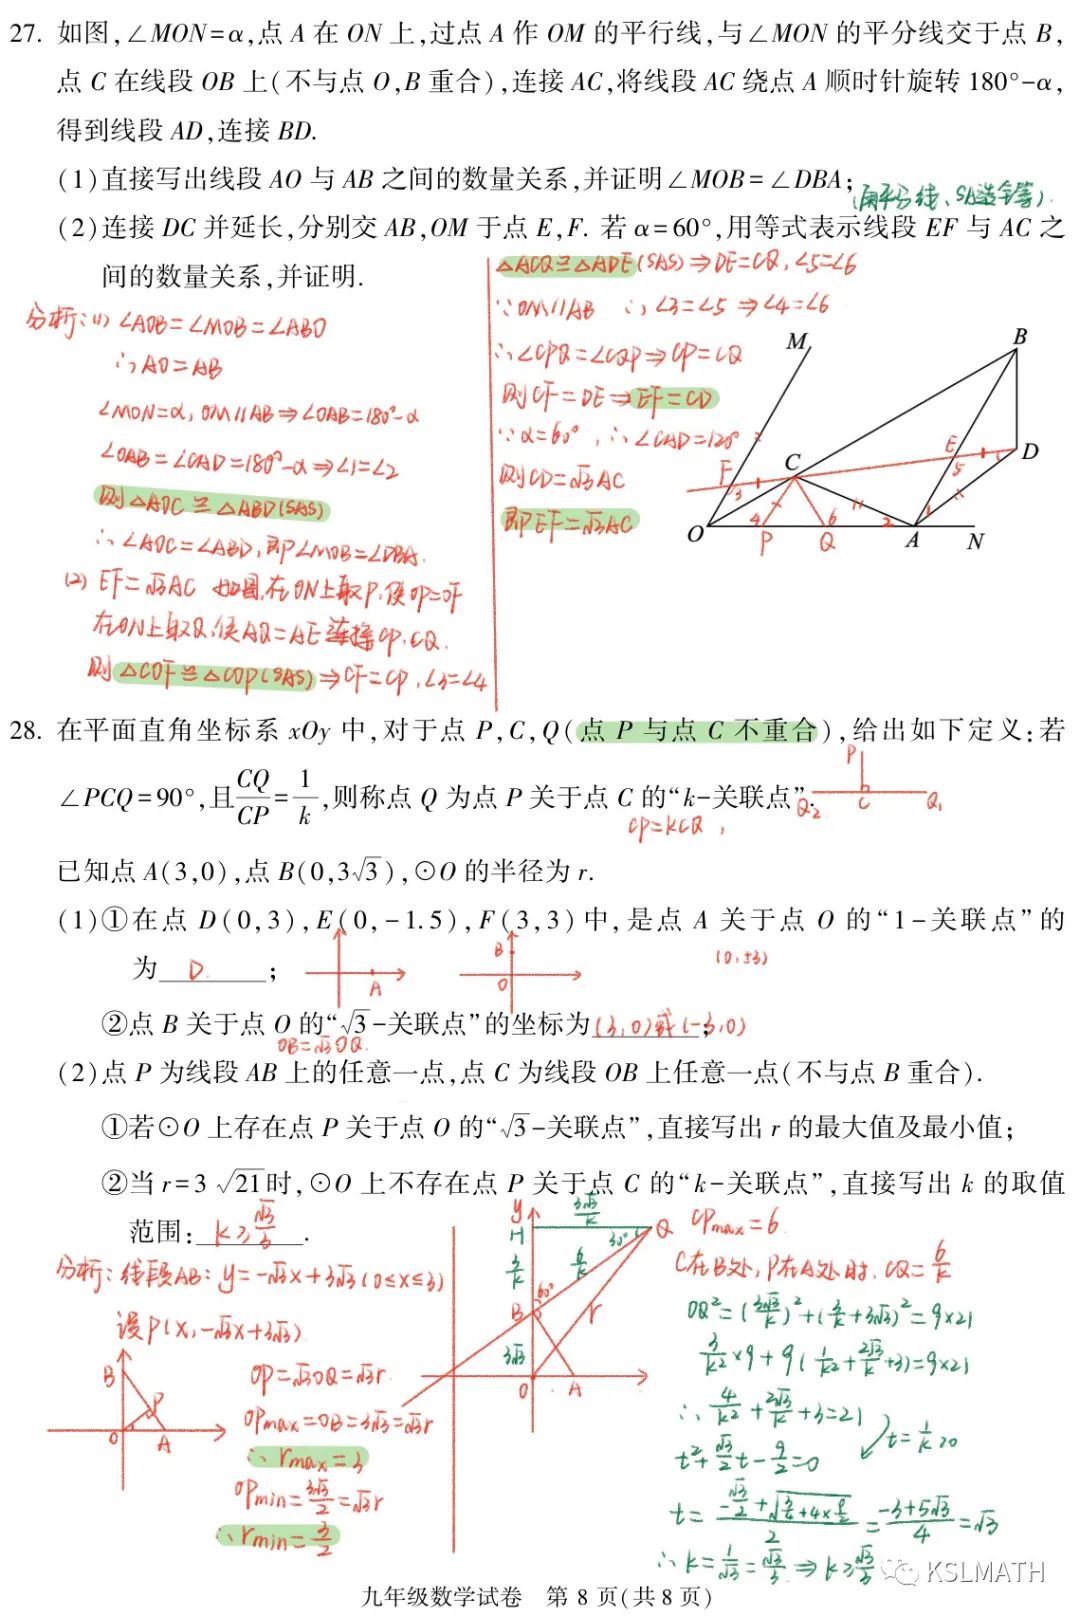 27. 如图,∠MON=α,点 A 在 ON 上,过点 A 作 OM 的平行线,与∠MON 的平分线交于点 B,
点 C 在线段 OB 上(不与点 O,B 重合),连接 AC,将线段 AC 绕点 A 顺时针旋转 180°-α,
得到线段 AD,连接 BD.
(1)直接写出线段 AO 与 AB 之间的数量关系,并证明∠MOB=∠DBA;
(角平分线、SAS造全等).
(2)连接 DC 并延长,分别交 AB,OM 于点 E,F. 若 α=60°,用等式表示线段 EF 与 AC 之
间的数量关系,并证明.
分析:(1) ∠AOB=∠MOB=∠ABO
∴AO=AB
∠MON=α, OM∥AB⇒∠OAB=180°-α
∠OAB=∠CAD=180°-α⇒∠1=∠2
则△AOC≌△ABD(SAS)
∴∠AOC=∠ABD,即∠MOB=∠DBA.
(2) EF=√3AC 如图,在ON上取P,使OP=OF
在ON上取Q,使AQ=AE 连接CP,CQ.
则△COF≌△COP(SAS)⇒CF=CP,∠3=∠4
△ACQ≌△ADE(SAS)⇒DE=CQ,∠5=∠6
∵OM∥AB ∴∠3=∠5⇒∠4=∠6
∴∠CPQ=∠CQP⇒CP=CQ
则CF=DE⇒EF=CD
∵α=60°,∴∠CAD=120°
则CD=√3AC
即EF=√3AC
M
B
F
3
C
E
5
D
1
O
4
P
6
Q
2
A
N
28. 在平面直角坐标系 xOy 中,对于点 P,C,Q(点 P 与点 C 不重合),给出如下定义:若
∠PCQ=90°,且CQ/CP=1/k,则称点 Q 为点 P 关于点 C 的“k-关联点”.
CP=kCQ,
P
Q₂
C
Q₁
已知点 A(3,0),点 B(0,3√3),⊙O 的半径为 r.
(1)①在点 D(0,3),E(0,-1.5),F(3,3)中,是点 A 关于点 O 的“1-关联点”的
为 D ;
A
B
O
(0,±3)
②点 B 关于点 O 的“√3-关联点”的坐标为(3,0)或(-3,0);
OB=√3OQ.
(2)点 P 为线段 AB 上的任意一点,点 C 为线段 OB 上任意一点(不与点 B 重合).
①若⊙O 上存在点 P 关于点 O 的“√3-关联点”,直接写出 r 的最大值及最小值;
②当 r=3√21时,⊙O 上不存在点 P 关于点 C 的“k-关联点”,直接写出 k 的取值
范围: k≥√3/3 .
分析:线段AB:y=-√3x+3√3(0≤x≤3)
设P(x,-√3x+3√3)
B
P
O
A
OP=√3OQ=√3r
OPmax=OB=3√3=√3r
∴rmax=3
OPmin=3√3/2=√3r
∴rmin=3/2
y
H
3√3/k
Q
30°
3/k
6/k
60°
B
r
3√3
O
A
CPmax=6
C在B处,P在A处时,CQ=6/k
OQ²=(3√3/k)²+(3/k+3√3)²=9×21
3/k²×9+9(1/k²+2√3/k+3)=9×21
∴4/k²+2√3/k+3=21
t=1/k>0
t²+√3/2t-9/2=0
t=-√3/2+√(3/4+4×9/2)/2=-√3+5√3/4=√3
∴k=1/√3=√3/3⇒k≥√3/3
KSLMATH
九年级数学试卷 第 8 页(共 8 页)